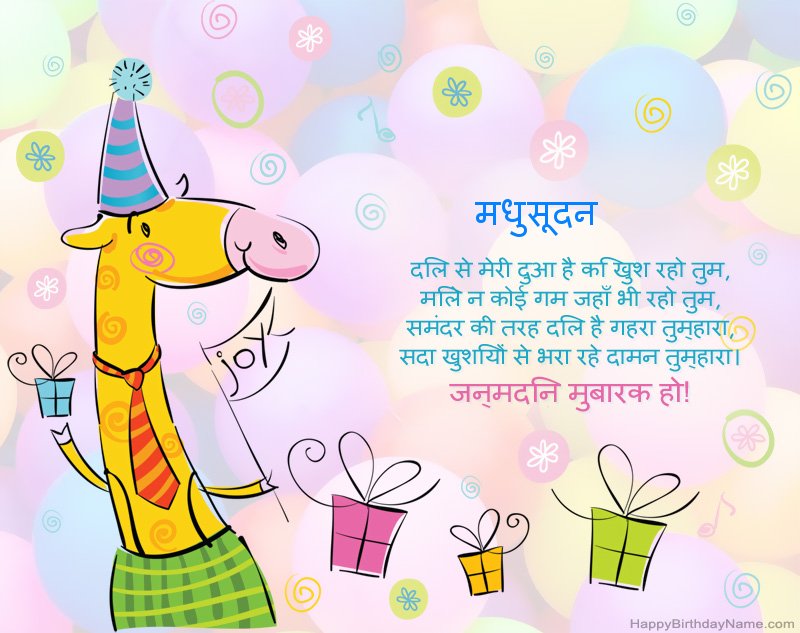 मधुसूदन
दिल से मेरी दुआ है कि खुश रहो तुम,
मिले न कोई गम जहाँ भी रहो तुम,
समंदर की तरह दिल है गहरा तुम्हारा,
सदा खुशियों से भरा रहे दामन तुम्हारा।
जन्मदिन मुबारक हो!
joy
HappyBirthdayName.com